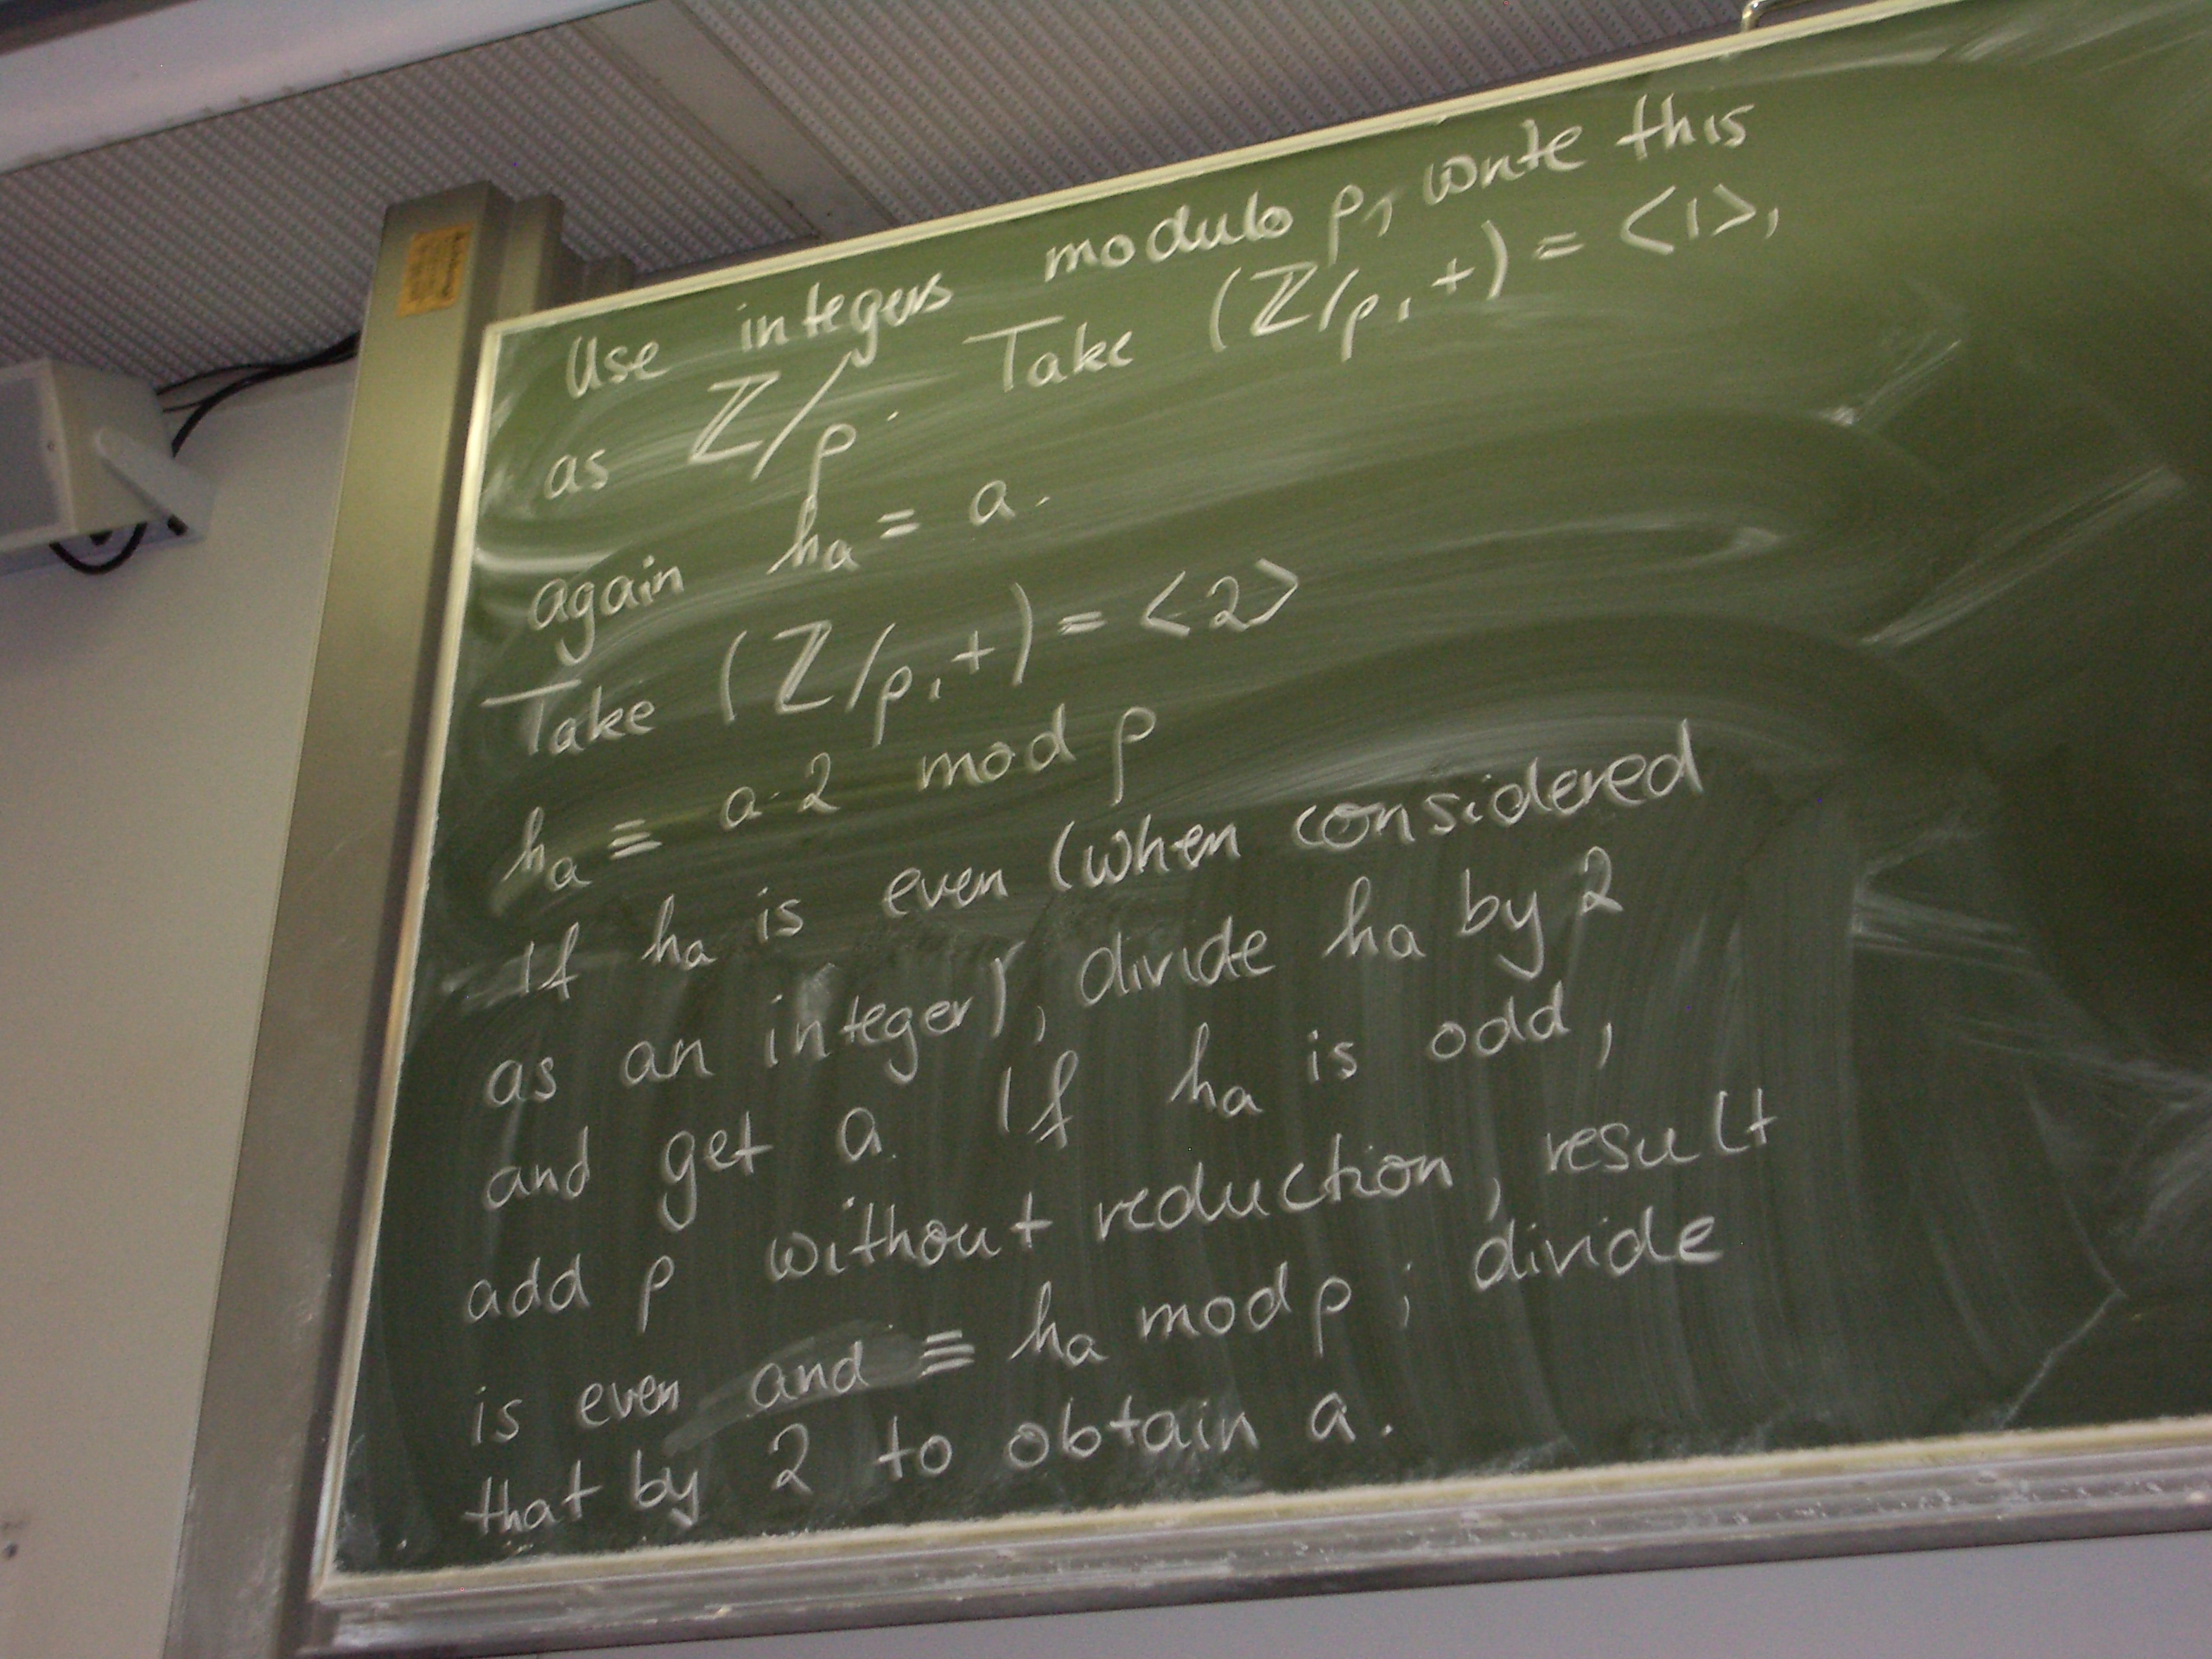 Use integers modulo p, write this
as ℤ/p. Take (ℤ/p, +) = <1>,
again hₐ = a.
Take (ℤ/p, +) = <2>
hₐ ≡ a·2 mod p
If hₐ is even (when considered
as an integer), divide hₐ by 2
and get a. If hₐ is odd,
add p without reduction, result
is even and ≡ hₐ mod p; divide
that by 2 to obtain a.